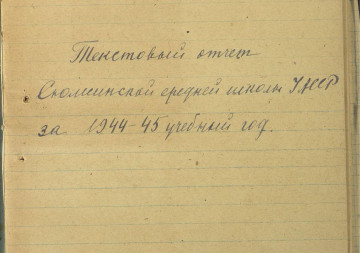 Текстовый отчет
Сюмсинской средней школы УАССР
за 1944-45 учебный год.